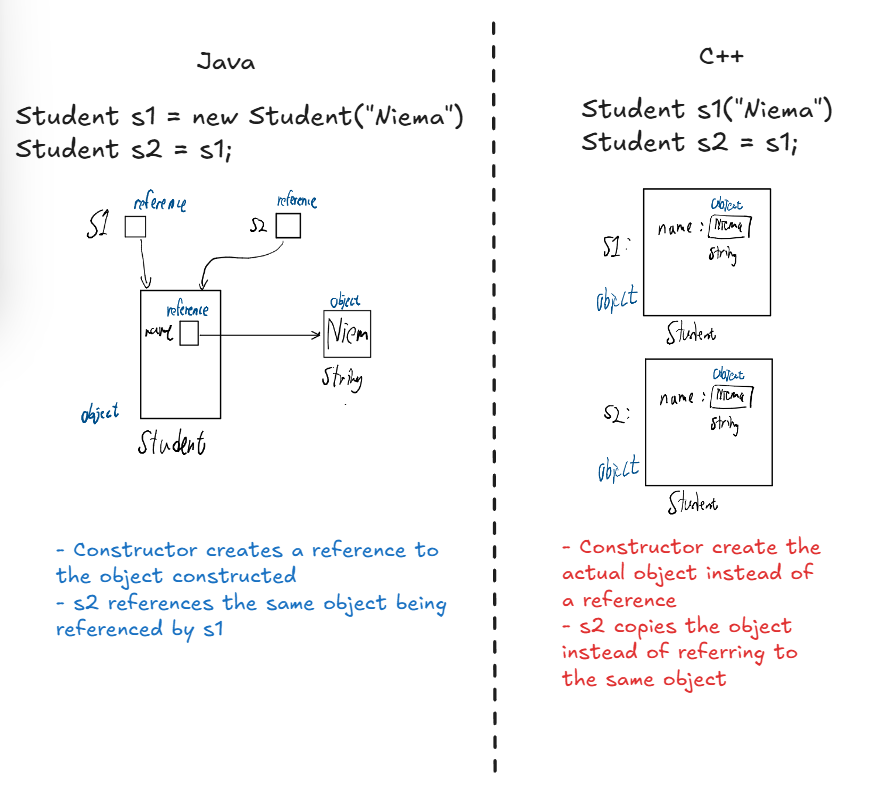 Java
Student s1 = new Student("Niema")
Student s2 = s1;
reference
reference
S1
s2
reference
name
object
Niem
String
object
Student
- Constructor creates a reference to
the object constructed
- s2 references the same object being
referenced by s1
C++
Student s1("Niema")
Student s2 = s1;
object
name : Niema
String
S1:
object
Student
object
name : Niema
String
s2:
object
Student
- Constructor create the
actual object instead of
a reference
- s2 copies the object
instead of referring to
the same object